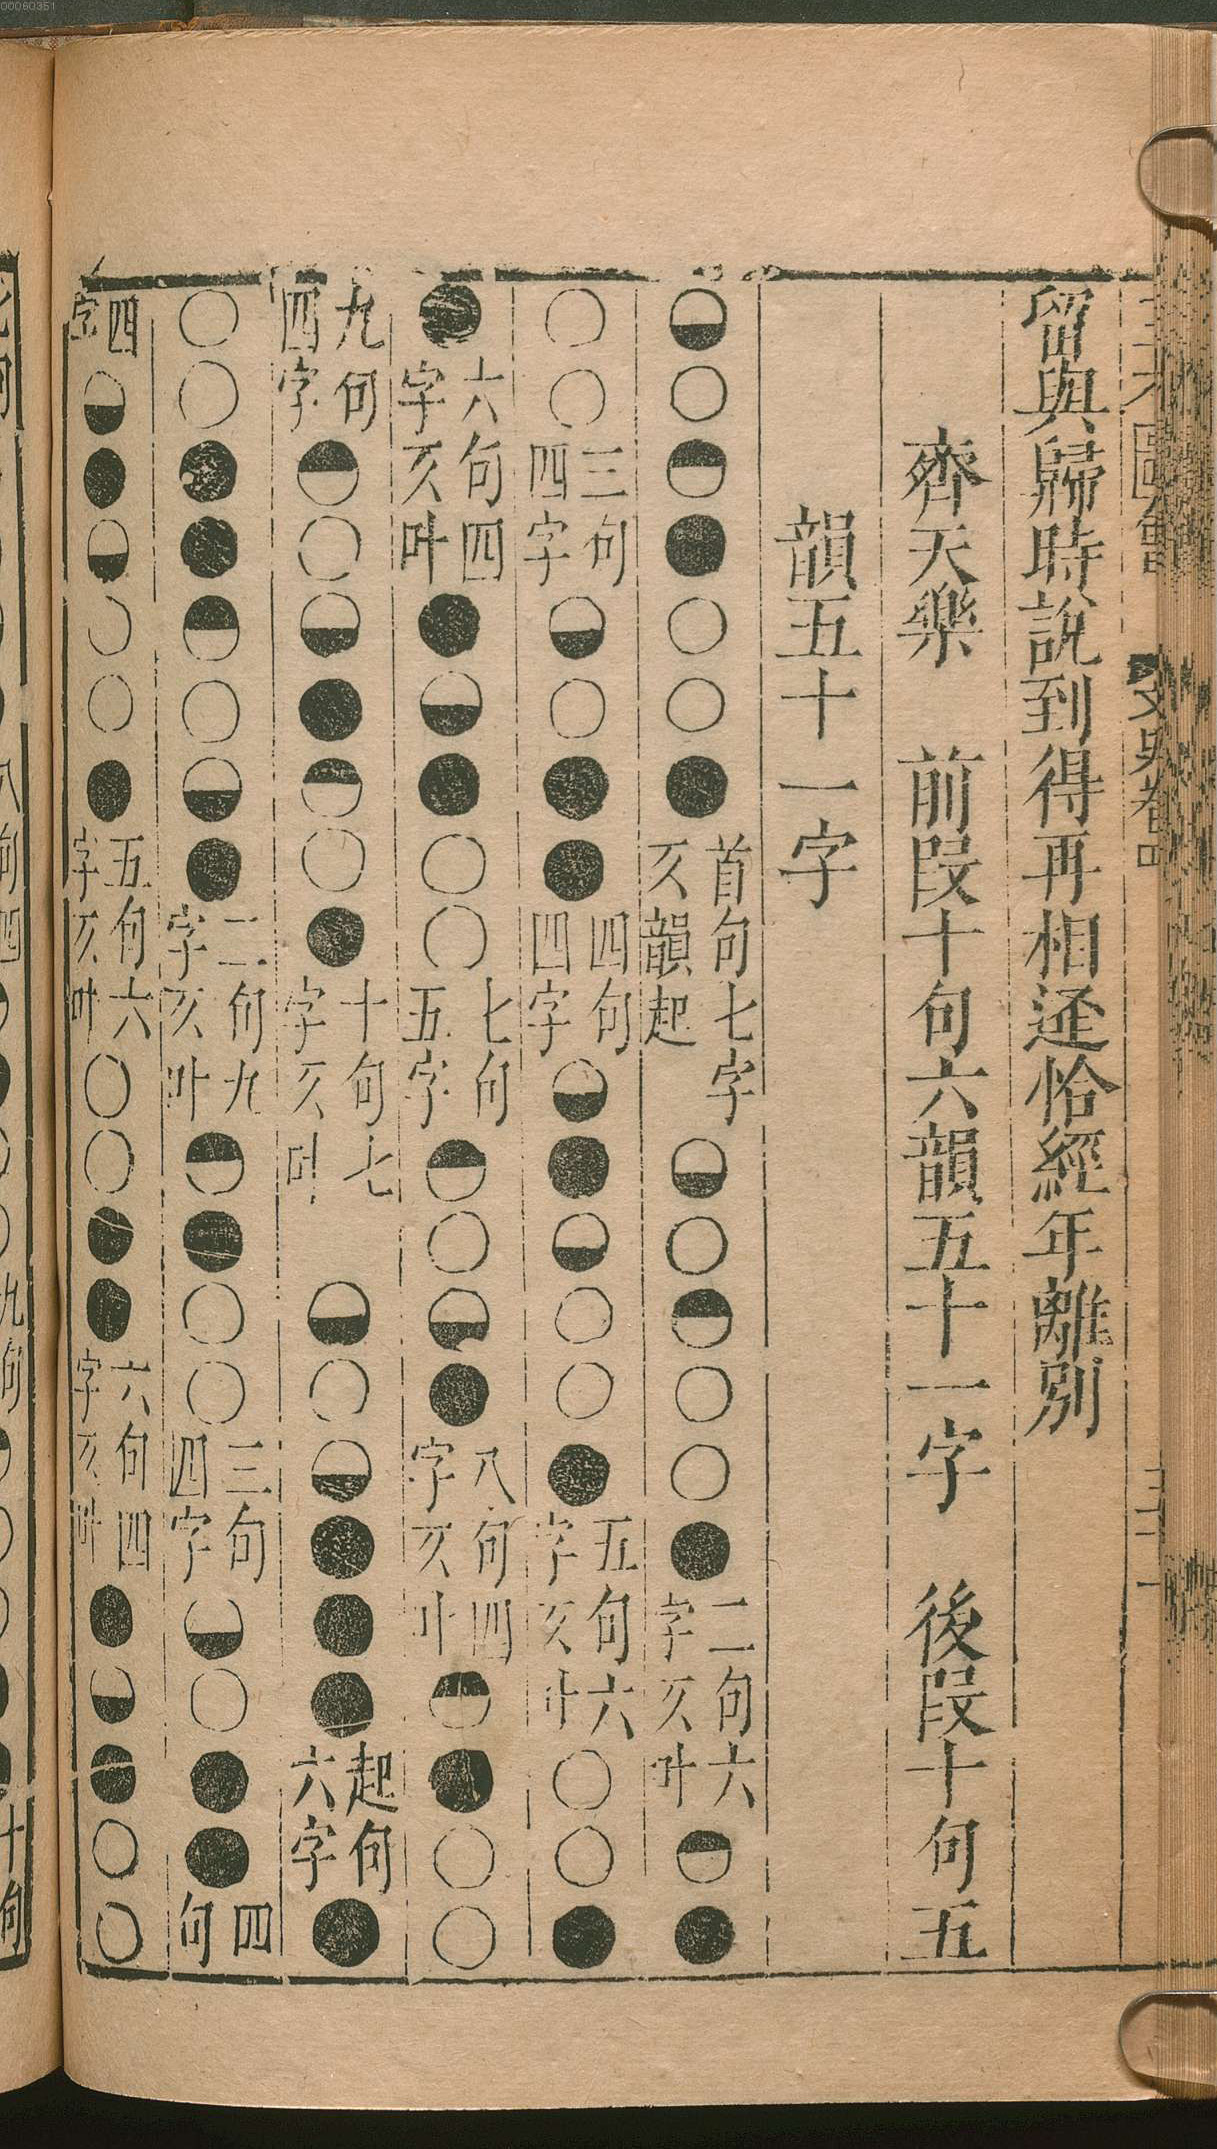 三才圖會 文史卷四
留與歸時說到得再相逢恰經年離別
齊天樂 前段十句六韻五十一字 後段十句五
韻五十一字
◒○◓●○○●首句七字仄韻起◒○◓○○●二句六字仄叶◓●
○○三句四字◒○●●四句四字◒●◒○○●五句六字仄叶○○●
●六句四字仄叶●◒●○○七句五字◓○◒●八句四字仄叶◓●○○
九句四字◓○◒●◓○●十句七字仄叶◒○◒●●●起句六字●
○○●●◓○◒●二句九字仄叶◓●○○三句四字◒○●●四句
四字◒●◒○○●五句六字仄叶○○●●六句四字仄叶●◒●○○